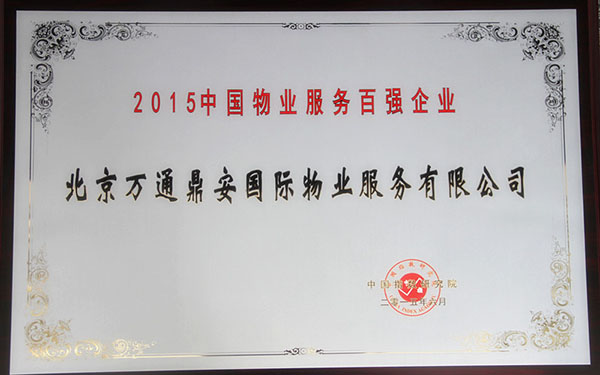 2015中国物业服务百强企业
北京万通鼎安国际物业服务有限公司
中国指数研究院
二零一五年六月